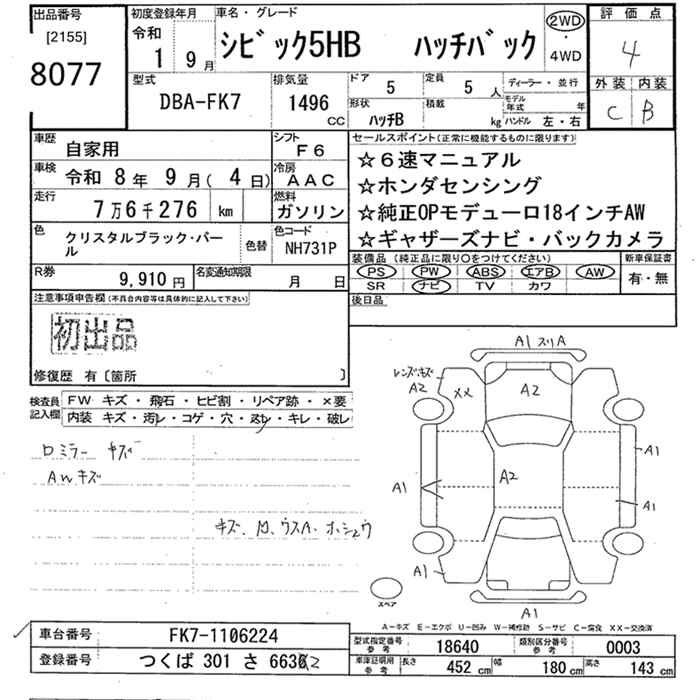 出品番号
[2155]
8077
初度登録年月
令和
1 9月
車名・グレード
シビック5HB ハッチバック
2WD
・
4WD
評価点
4
外装 内装
C B
型式
DBA-FK7
排気量
1496
CC
ドア
5
定員
5 人
形状
ハッチB
積載
kg
ディーラー・並行
モデル年式 年
ハンドル 左・右
車歴
自家用
シフト
F6
車検
令和 8年 9月( 4日)
冷房
AAC
走行
7万6千276 km
燃料
ガソリン
色
クリスタルブラック・パール
色替
色コード
NH731P
R券
9,910円
名変通知期限
月 日
セールスポイント(正常に機能するものに限ります)
☆6速マニュアル
☆ホンダセンシング
☆純正OPモデューロ18インチAW
☆ギャザーズナビ・バックカメラ
装備品 (純正品に限り○をつけてください)
PS PW ABS エアB AW
SR ナビ TV カワ
新車保証書
有・無
後日品
注意事項申告欄(不具合内容等は具体的に記入して下さい)
初出品
修復歴 有〔箇所 〕
検査員
記入欄
FW キズ・飛石・ヒビ割・リペア跡・×要
内装 キズ・汚レ・コゲ・穴・スレ・キレ・破レ
ロミラー キズ
AWキズ
A1スリA
レンズ・キズ
A2
XX
A2
A1
A2
A1
A1
A1
A1
スペア
A-キズ E-エクボ U-凹み W-補修跡 S-サビ C-腐食 XX-交換済
車台番号
FK7-1106224
登録番号
つくば 301 さ 663
型式指定番号
参考
18640
類別区分番号
参考
0003
車庫証明用
参考
長さ
452 cm
幅
180 cm
高さ
143 cm